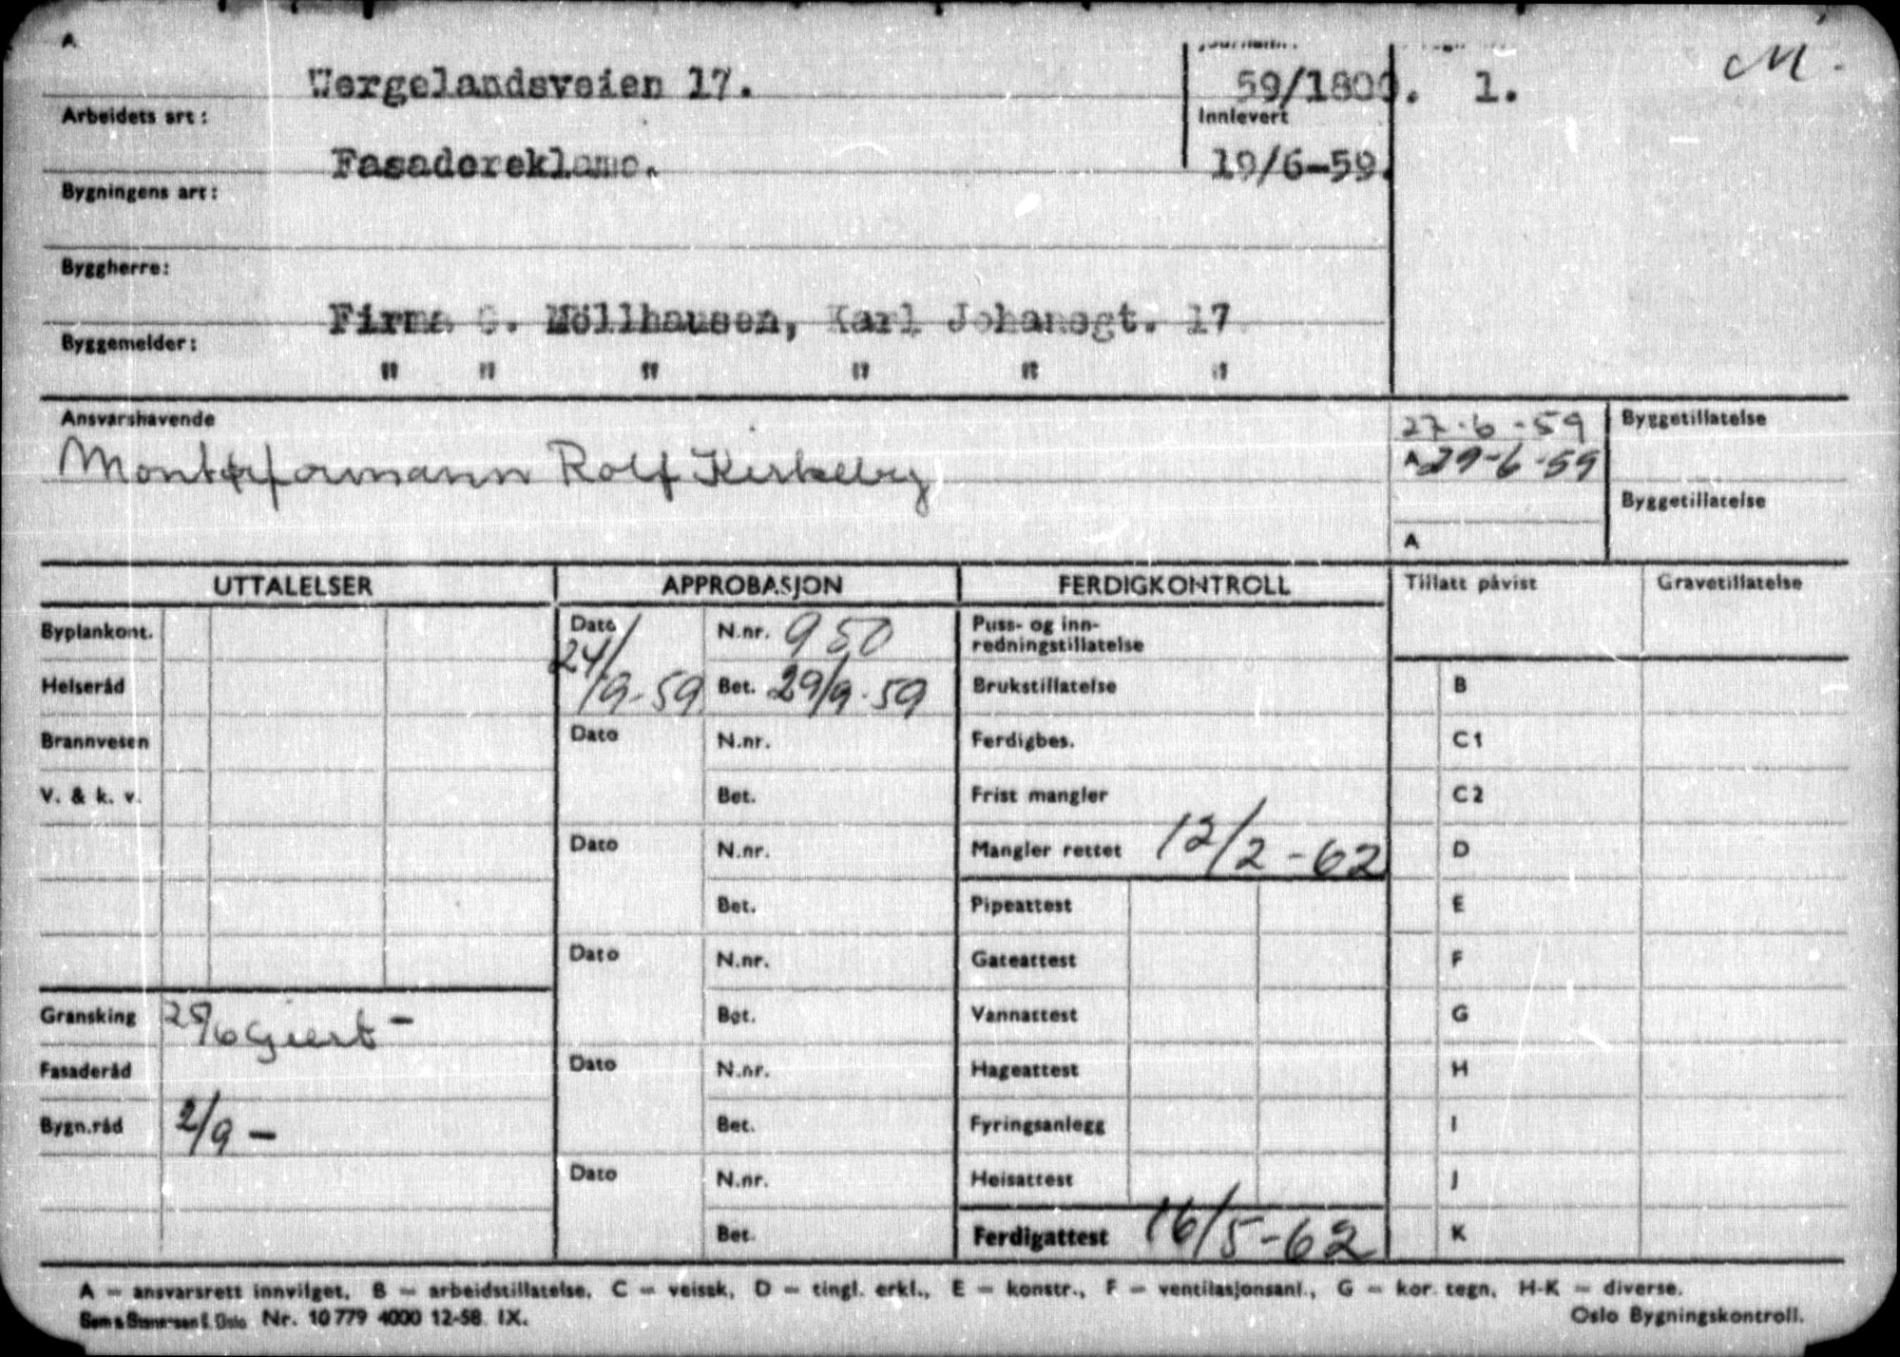 A
M.
Wergelandsveien 17. 59/1800. 1.
Arbeidets art: Innlevert
Fasadereklame. 19/6-59.
Bygningens art:
Byggherre:
Firma C. Möllhausen, Karl Johansgt. 17
Byggemelder:
" " " " " "
Ansvarshavende 27-6-59 Byggetillatelse
Montørformann Rolf Kirkeby A 29-6-59
Byggetillatelse
A
UTTALELSER APPROBASJON FERDIGKONTROLL Tillatt påvist Gravetillatelse
Byplankont. Dato 24/9-59 N.nr. 950 Puss- og inn-
redningstillatelse
Helseråd Bet. 29/9-59 Brukstillatelse B
Brannvesen Dato N.nr. Ferdigbes. C1
V. & k. v. Bet. Frist mangler C2
Dato N.nr. Mangler rettet 12/2-62 D
Bet. Pipeattest E
Dato N.nr. Gateattest F
Gransking 25/6 Bet. Vannattest G
Fasaderåd Dato N.nr. Hageattest H
Bygn.råd 2/9 - Bet. Fyringsanlegg I
Dato N.nr. Heisattest J
Bet. Ferdigattest 16/5-62 K
A = ansvarsrett innvilget, B = arbeidstillatelse, C = veisak, D = tingl. erkl., E = konstr., F = ventilasjonsanl., G = kor. tegn, H-K = diverse.
Nr. 10779 4000 12-58. IX. Oslo Bygningskontroll.